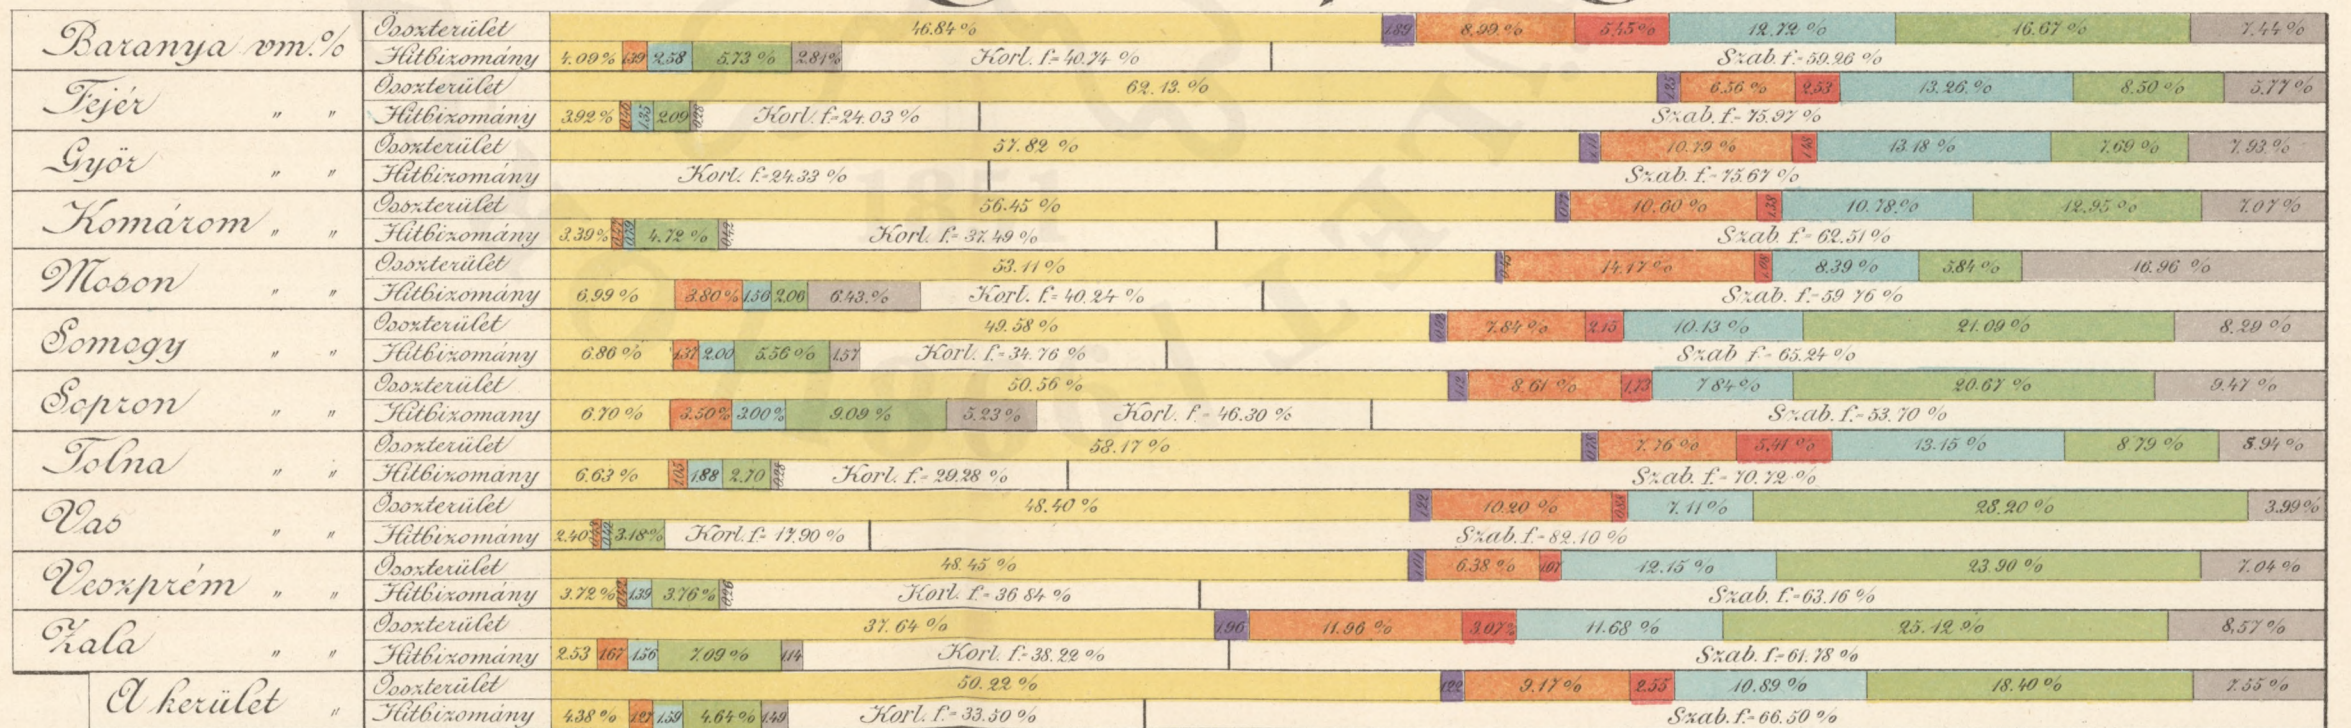 Baranya vm. %
Összterület 46.84 % 1.89 8.99 % 5.45 % 12.72 % 16.67 % 7.44 %
Hitbizomány 4.09 % 1.39 2.58 5.73 % 2.81% Korl. f.= 40.74 % Szab. f.= 59.26 %
Fejér " "
Összterület 62.13. % 1.25 6.56 % 2.53 13.26. % 8.50 % 5.77 %
Hitbizomány 3.92 % 1.35 2.09 0.28 Korl. f.= 24.03 % Szab. f.= 75.97 %
Győr " "
Összterület 57.82 % 1.11 10.79 % 1.48 13.18 % 7.69 % 7.93 %
Hitbizomány Korl. f.= 24.33 % Szab. f.= 75.67 %
Komárom " "
Összterület 56.45 % 0.77 10.60 % 1.38 10.78 % 12.95 % 7.07 %
Hitbizomány 3.39% 4.72 % 0.42 Korl. f.= 37.49 % Szab. f.= 62.51 %
Moson " "
Összterület 53.11 % 14.17 % 1.08 8.39 % 5.84 % 16.96 %
Hitbizomány 6.99 % 3.80 % 1.56 2.06 6.43. % Korl. f.= 40.24 % Szab. f.= 59 76 %
Somogy " "
Összterület 49.58 % 0.92 7.84 % 2.15 10.13 % 21.09 % 8.29 %
Hitbizomány 6.86 % 1.37 2.00 5.56 % 1.57 Korl. f.= 34.76 % Szab f.= 65.24 %
Sopron " "
Összterület 50.56 % 1.12 8 61 % 1.73 7 84 % 20.67 % 9.47 %
Hitbizomany 6.70 % 3.50% 3.00% 9.09 % 5.23 % Korl. f = 46.30 % Szab. f.= 53.70 %
Tolna " "
Összterület 58.17 % 0.78 7.76 % 5.41 % 13.15 % 8.79 % 5.94 %
Hitbizomány 6.63 % 1.05 1.88 2.70 0.28 Korl. f.= 29.28 % Szab. f.= 70.72 %
Vas " "
Összterület 48.40 % 1.22 10.20 % 0.88 7.11 % 28.20 % 3.99 %
Hitbizomány 2.40 3.18% Korl. f.= 17.90 % Szab. f.= 82.10 %
Veszprém " "
Összterület 48.45 % 1.01 6.38 % 1.07 12.15 % 23.90 % 7.04 %
Hitbizomány 3.72 % 1.39 3.76 % 0.26 Korl. f.= 36 84 % Szab. f.= 63.16 %
Zala " "
Összterület 37.64 % 1.96 11.96 % 3.07% 11.68 % 25.12 % 8,57 %
Hitbizomány 2.53 1.67 1.56 7.09 % 1.14 Korl. f.= 38.22 % Szab. f.= 61.78 %
A kerület "
Összterület 50.22 % 1.22 9.17 % 2.55 10.89 % 18.40 % 7.55 %
Hitbizomány 4.38 % 1.27 1.59 4.64 % 1.49 Korl. f.= 33.50 % Szab. f.= 66.50 %